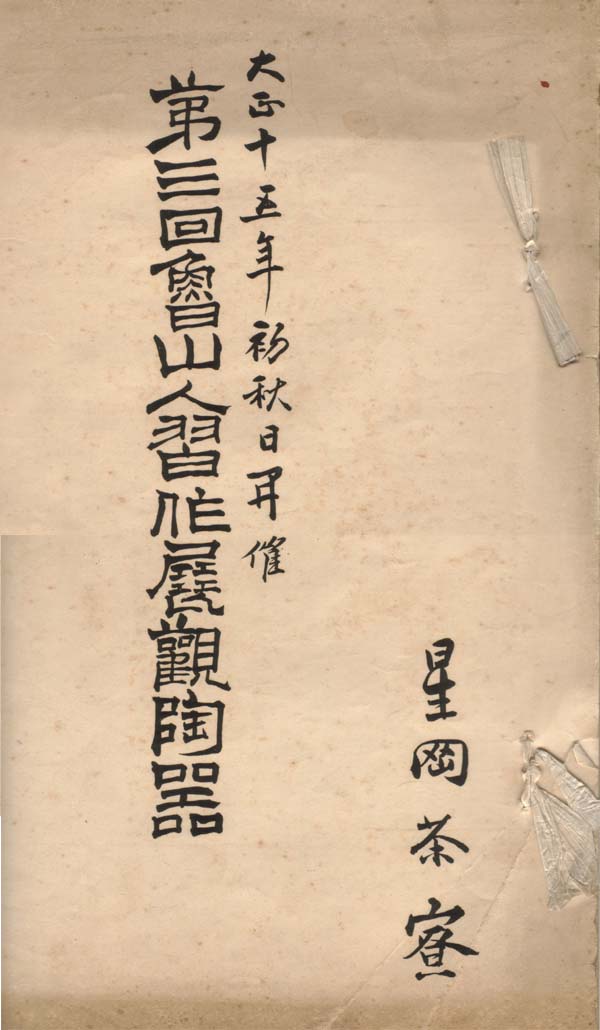 星岡茶寮
大正十五年初秋日開催
第三回魯山人習作展觀陶器